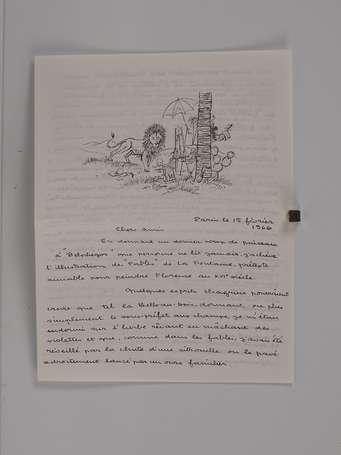 Paris le 15 février
1966
Chers amis
En donnant un dernier coup de pinceau
à "Belphégor" que personne ne lit jamais, j'achève
l'illustration des "Fables" de La Fontaine, prétexte
aimable pour peindre Florence au XVIe siècle.
Quelques esprits chagrins pourraient
croire que tel la Belle-au-bois-dormant, ou plus
simplement le sous-préfet aux champs, je m'étais
endormi sur l'herbe rêvant en mâchant des
violettes et que, comme dans les fables, j'avais été
réveillé par la chute d'une citrouille ou le pavé
adroitement lancé par un ours familier.